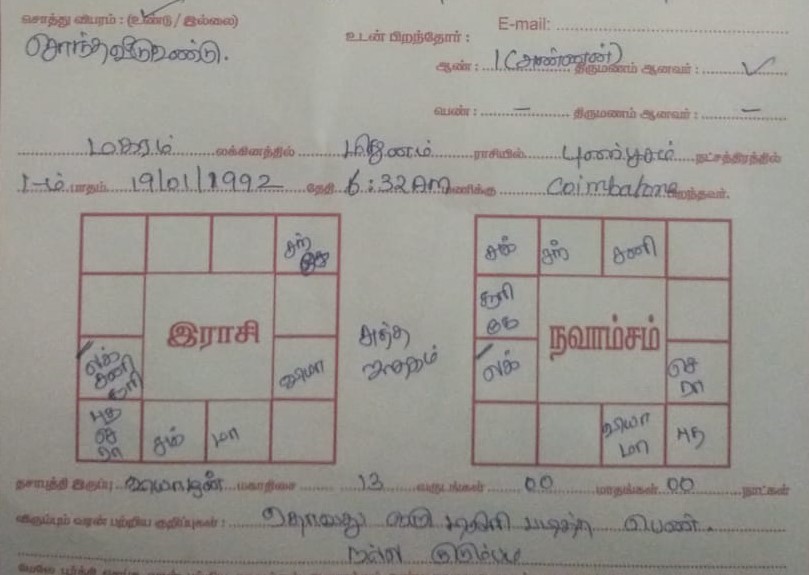 சொத்து விபரம் : (உண்டு / இல்லை)
சொந்தவீடு உண்டு.
E-mail:
உடன் பிறந்தோர் :
ஆண் : 1 (அண்ணன்) திருமணம் ஆனவர் : ✓
பெண் : – திருமணம் ஆனவர் : –
மகரம் லக்கினத்தில் மிதுனம் ராசியில் புனர்பூசம் நட்சத்திரத்தில்
1-ம் பாதம் 19/01/1992 தேதி 6:32AM மணிக்கு Coimbatore பிறந்தவர்.
சந்
கே
இராசி
லக்
சனி
சூரி
வியா
புத
செ
ரா
சுக்
மா
சுத்த
ஜாதகம்
சுக் சந் சனி
சூரி
கே
நவாம்சம்
லக்
செ
ரா
வியா
மா
புத
தசாபுத்தி இருப்பு வியாழன் மகாதிசை 13 வருடங்கள் 00 மாதங்கள் 00 நாட்கள்
விரும்பும் வரன் பற்றிய குறிப்புகள் : படித்த பெண்.
நல்ல குடும்பம்